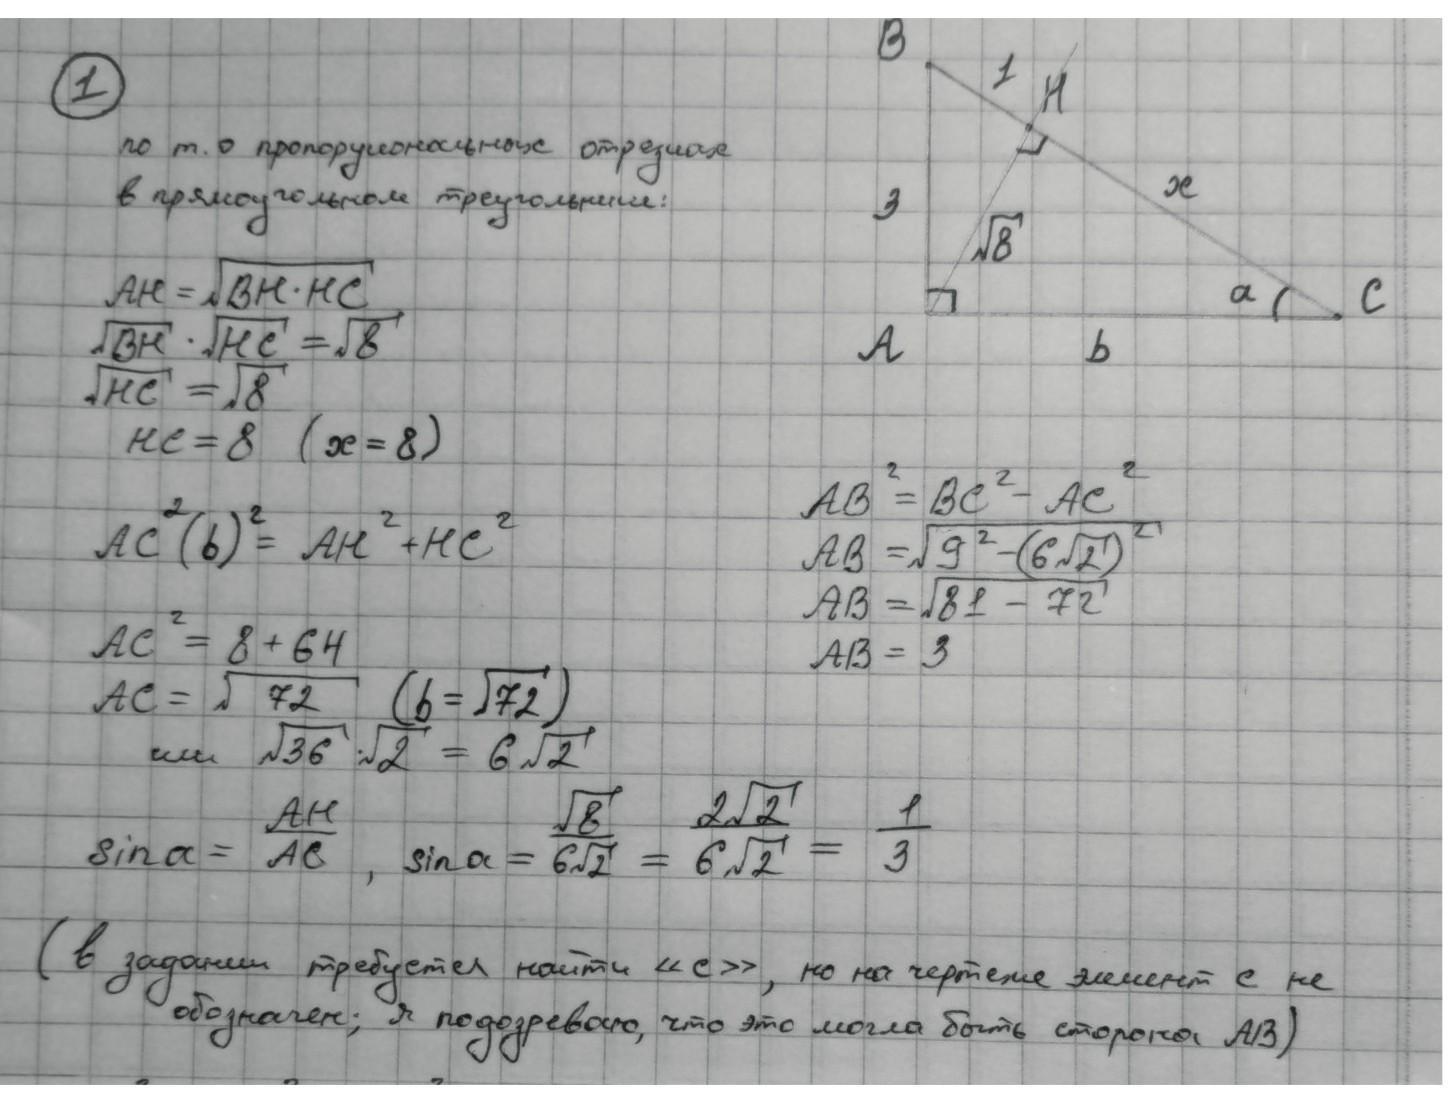 1
по т. о пропорциональных отрезках
в прямоугольном треугольнике:
B
1
H
x
3
√8
a
C
A
b
AH = √(BH·HC)
√BH · √HC = √8
√HC = √8
HC = 8 (x = 8)
AC²(b)² = AH² + HC²
AC² = 8 + 64
AC = √72 (b = √72)
или √36 · √2 = 6√2
AB² = BC² - AC²
AB = √(9² - (6√2)²)
AB = √(81 - 72)
AB = 3
sin a = AH/AC , sin a = √8/6√2 = 2√2/6√2 = 1/3
(в задании требуется найти «c», но на чертеже элемент c не
обозначен; я подозреваю, что это могла быть сторона AB)